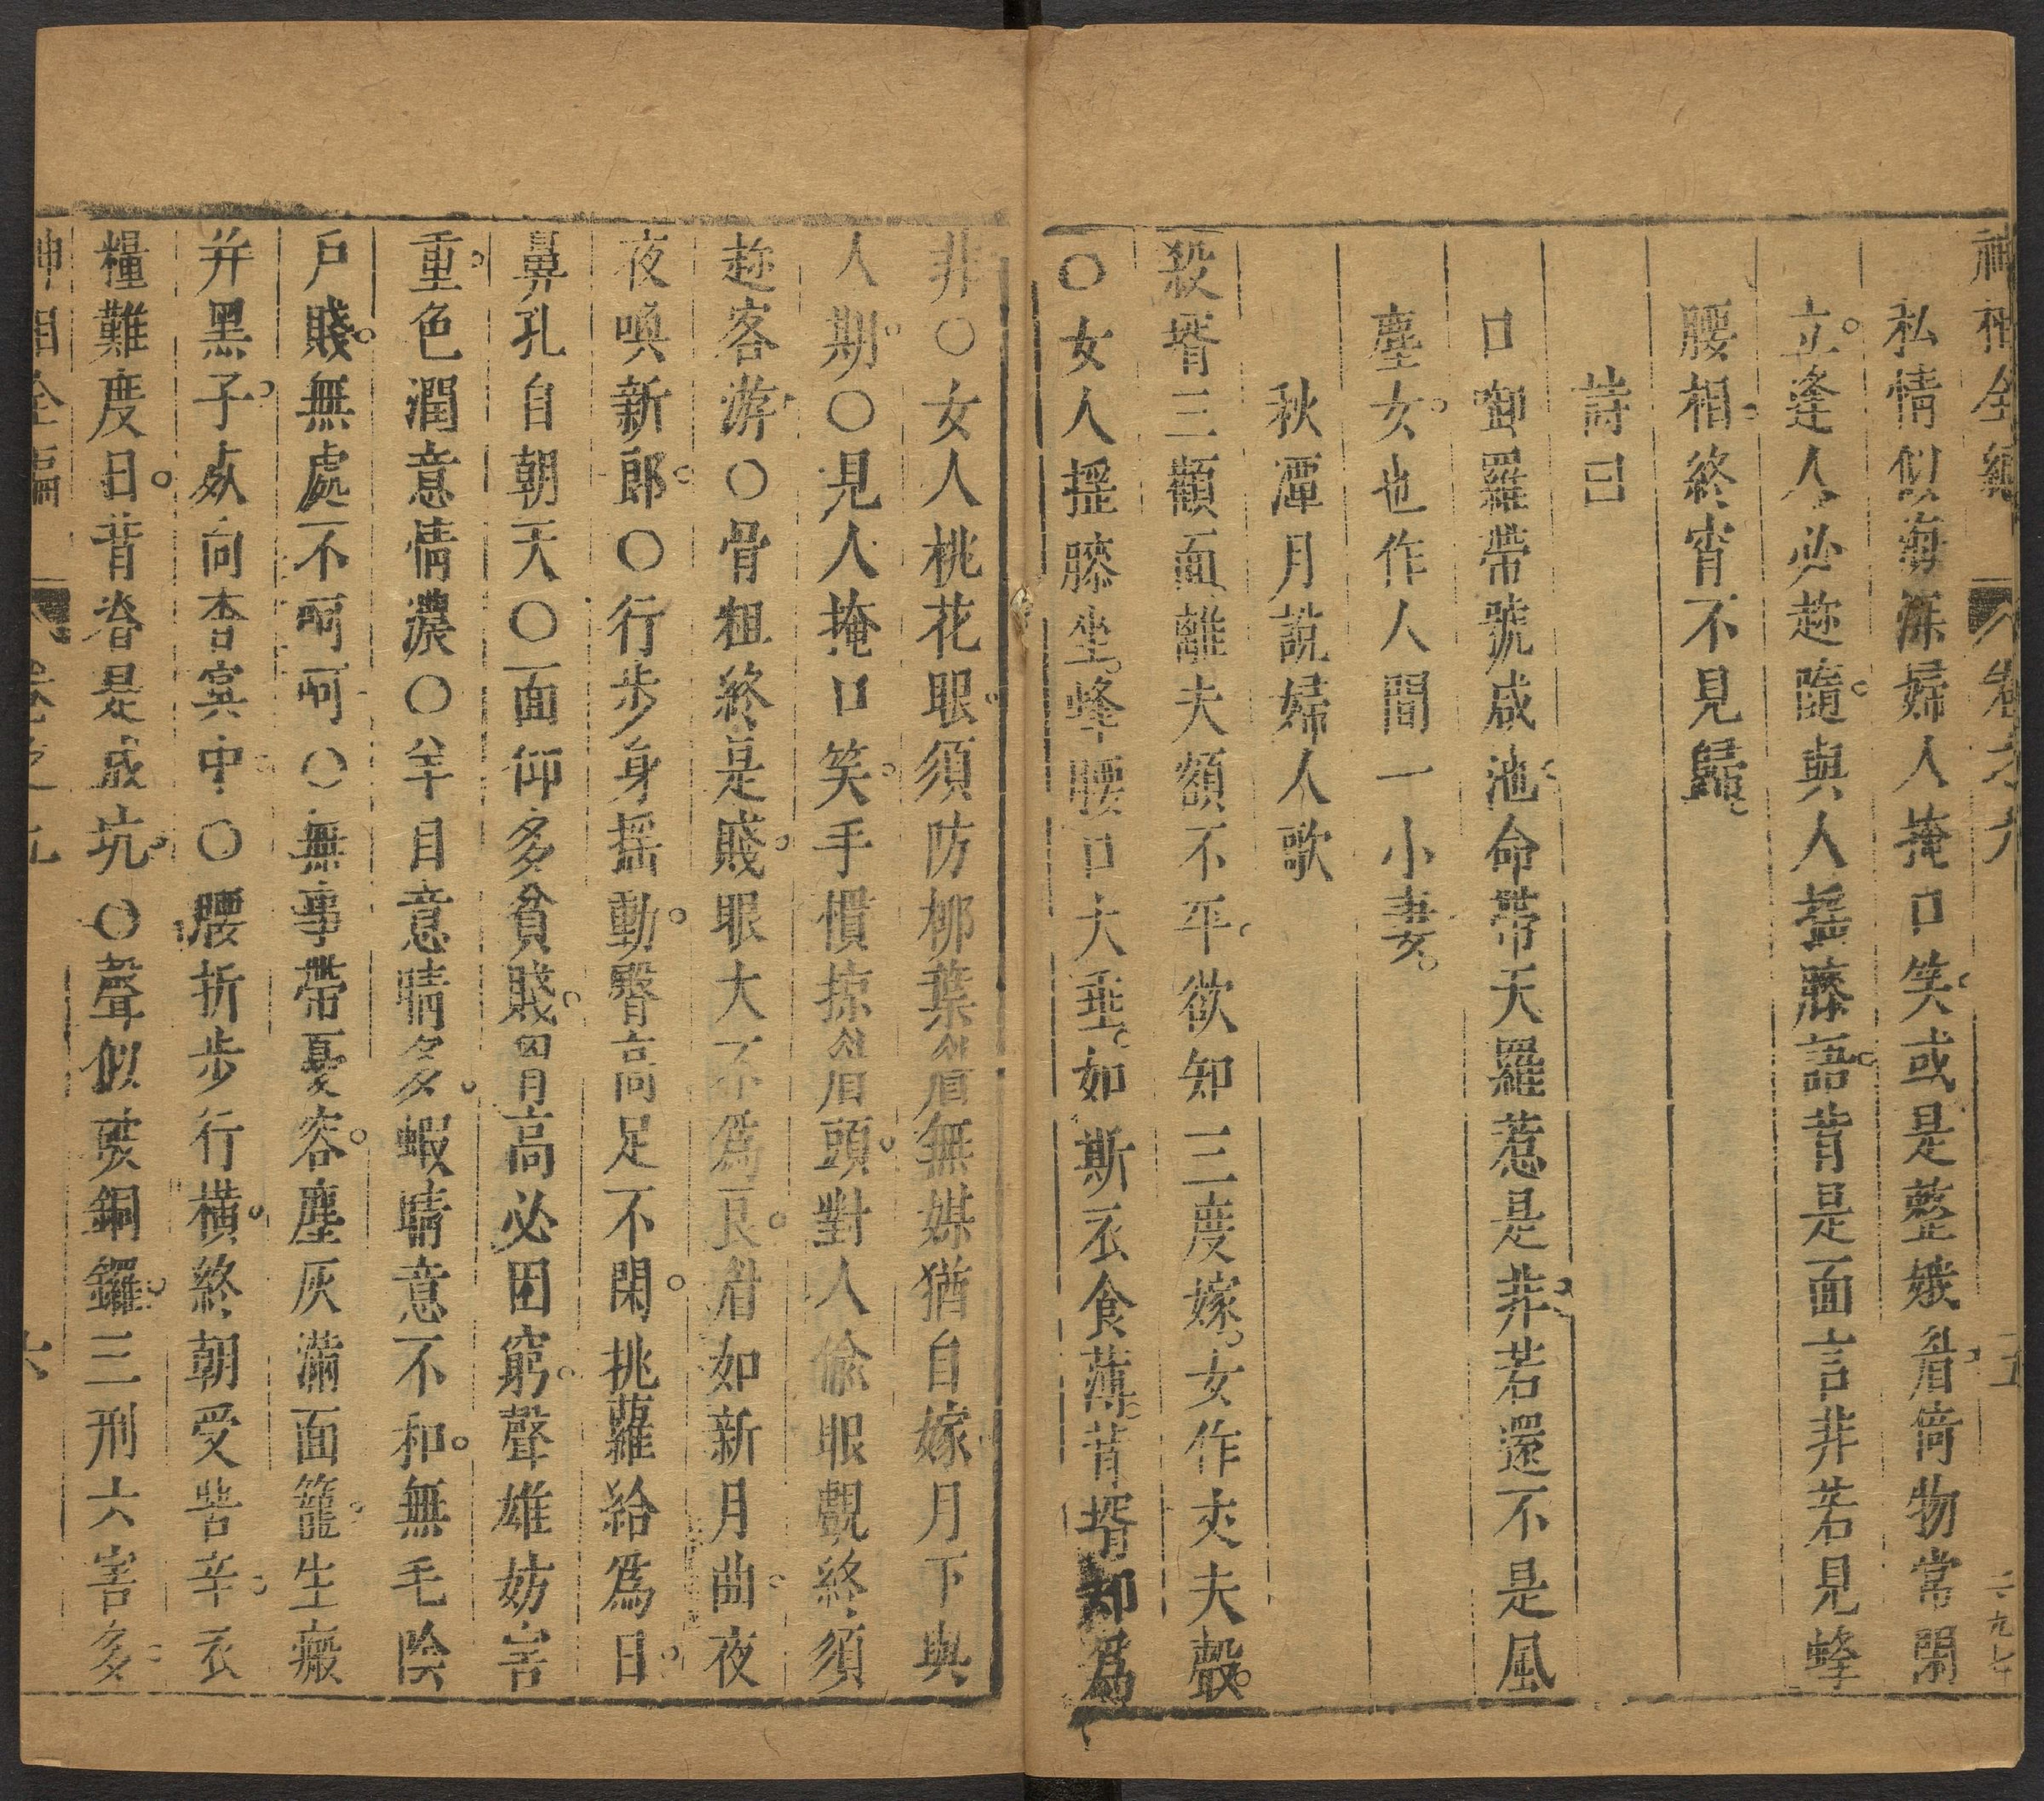 神相全編 卷之九 五 二九七
私情似海深婦人掩口笑或是整娥眉倚物常閑
立逢人必趂隨與人摇膝語背是面言非若見蜂
腰相終宵不見歸
詩曰
口卸羅帶號咸池命帶天羅惹是非若還不是風
塵女也作人間一小妻
秋潭月說婦人歌
殺壻三顴面離夫額不平欲知三度嫁女作丈夫聲
〇女人摇膝坐蜂腰口大垂如斯衣食薄背壻却爲
非〇女人桃花眼須防柳葉眉無媒猶自嫁月下與
人期〇見人掩口笑手慣掠眉頭對人偸眼覷終須
趂客游〇骨粗終是賤眼大不爲良眉如新月曲夜
夜喚新郎〇行步身摇動臀高足不閑挑蘿給爲日
鼻孔自朝天〇面仰多貧賤胷高必困窮聲雄妨害
重色潤意情濃〇羊目意睛多蝦睛意不和無毛陰
戶賤無處不呵呵〇無事帶憂容塵灰滿面籠生癜
并黑子𤆬向杳冥中〇腰折步行橫終朝受苦辛衣
糧難度日背脊是成坑〇聲似破銅鑼三刑六害多
神相全編 卷之九 六